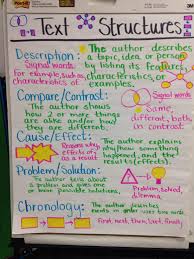 Text Structures
Description: The author describes
Signal words: a topic, idea, or person
by listing its features,
for example, such as, characteristics, or
characteristics of examples.
Compare/Contrast: Signal words
The author shows
how 2 or more things same, different,
are alike and/or how both, in contrast
they are different.
Cause/Effect: The author explains
Reasons why why/how something
effects happened, and the
as a result results (effects).
Problem/Solution:
The author tells about
a problem and gives one Problem, solved,
or more possible solutions. dilemma
Chronology: The author lists
events in order
First, next, then, last, finally